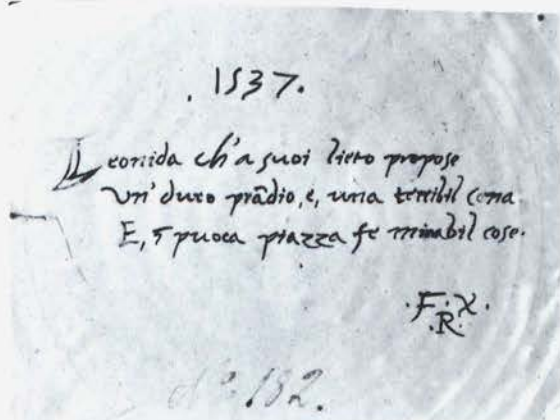 . 1537.
Leonida ch'a suoi lieto propose
un' duro prãdio, e, una terribil cena
E, ī puoca piazza fe mirabil cose.
.F. X.
.R.
No. 182.